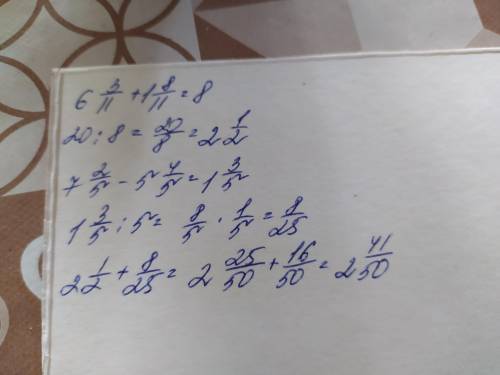 6 3/11 + 1 8/11 = 8
20 : 8 = 20/8 = 2 1/2
7 2/5 - 5 4/5 = 1 3/5
1 3/5 : 5 = 8/5 · 1/5 = 8/25
2 1/2 + 8/25 = 2 25/50 + 16/50 = 2 41/50